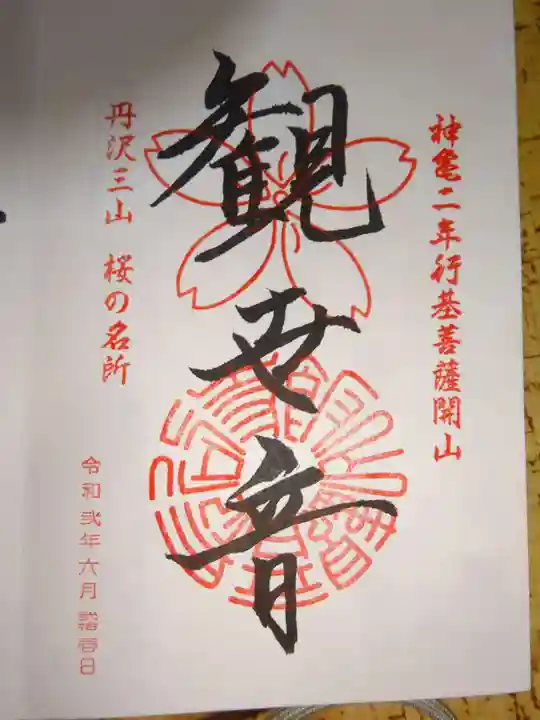 神亀二年行基菩薩開山
観世音
丹沢三山 桜の名所
令和弐年六月 日